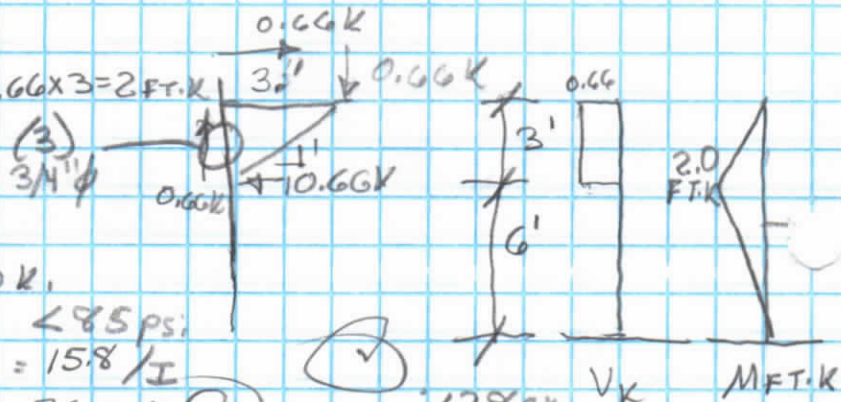 0.66K
.66x3=2 FT.K
3'
0.66K
0.66
(3)
3/4"ϕ
0.66K
1'
0.66K
3'
2.0
FT.K
6'
K.
<85 psi
= 15.8/I
VK
MFT.K